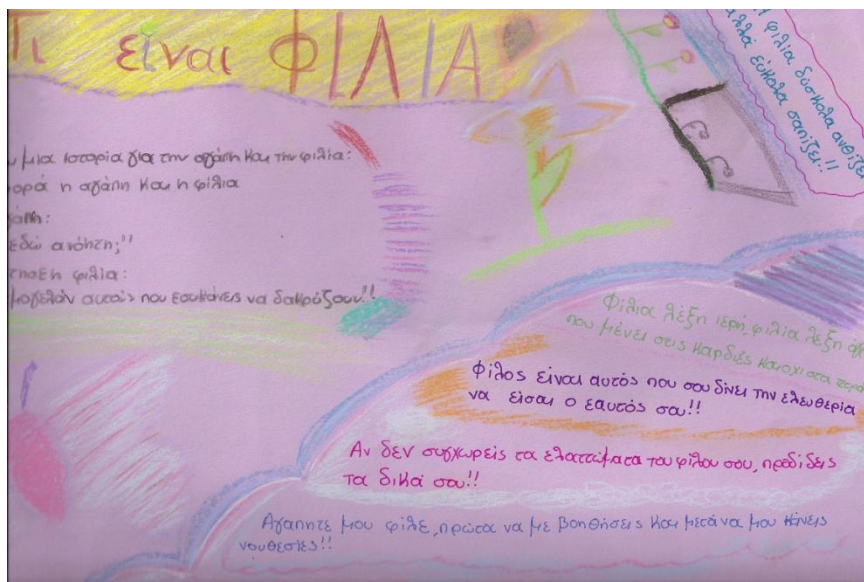 Τι είναι ΦΙΛΙΑ
φιλία δύσκολα ανθίζει
αλλά εύκολα σαπίζει!!
μια ιστορία για την αγάπη και την φιλία:
φορά η αγάπη και η φιλία
εδώ ανόητη;"
η φιλία:
αυτούς που εσυ κάνεις να δακρύζουν"!!
Φίλια λέξη ιερή, φιλία λέξη
που μένει στις καρδιές και οχι στα
Φίλος είναι αυτός που σου δίνει την ελευθερία
να είσαι ο εαυτός σου!!
Αν δεν συγχωρείς τα ελαττώματα του φίλου σου, προδίδεις
τα δικά σου!!
Αγαπητε μου φίλε, πρώτα να με βοηθήσεις και μετά να μου κάνεις
νουθεσίες!!